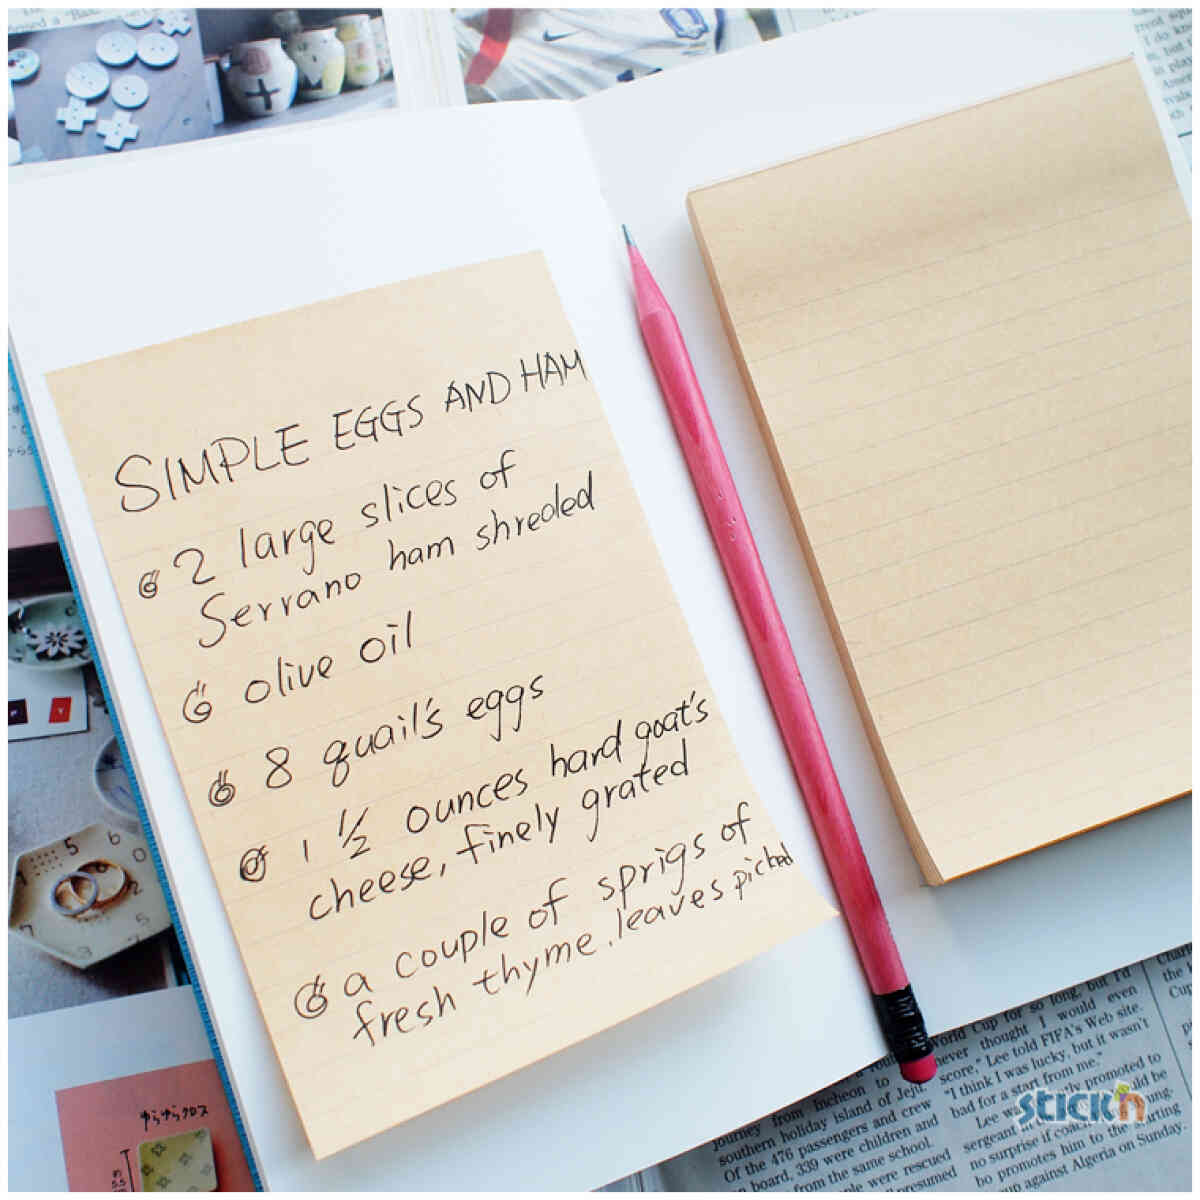 SIMPLE EGGS AND HAM
2 large slices of
Serrano ham shreded
olive oil
8 quail's eggs
1 ½ ounces hard goat's
cheese, finely grated
a couple of sprigs of
fresh thyme, leaves picked
ゆらゆらクロス
World Cup for so long, but I'd
never thought I would even
score," Lee told FIFA's Web site.
"I think I was lucky, but it wasn't
bad for a start from me."
promoted to
journey from Incheon to
southern holiday island of Jeju.
Of the 476 passengers and crew
on board, 339 were children and
from the same school.
were rescued
sergeant
no surprise if
bo promotes him to the
up against Algeria on Sunday.
STICK'n